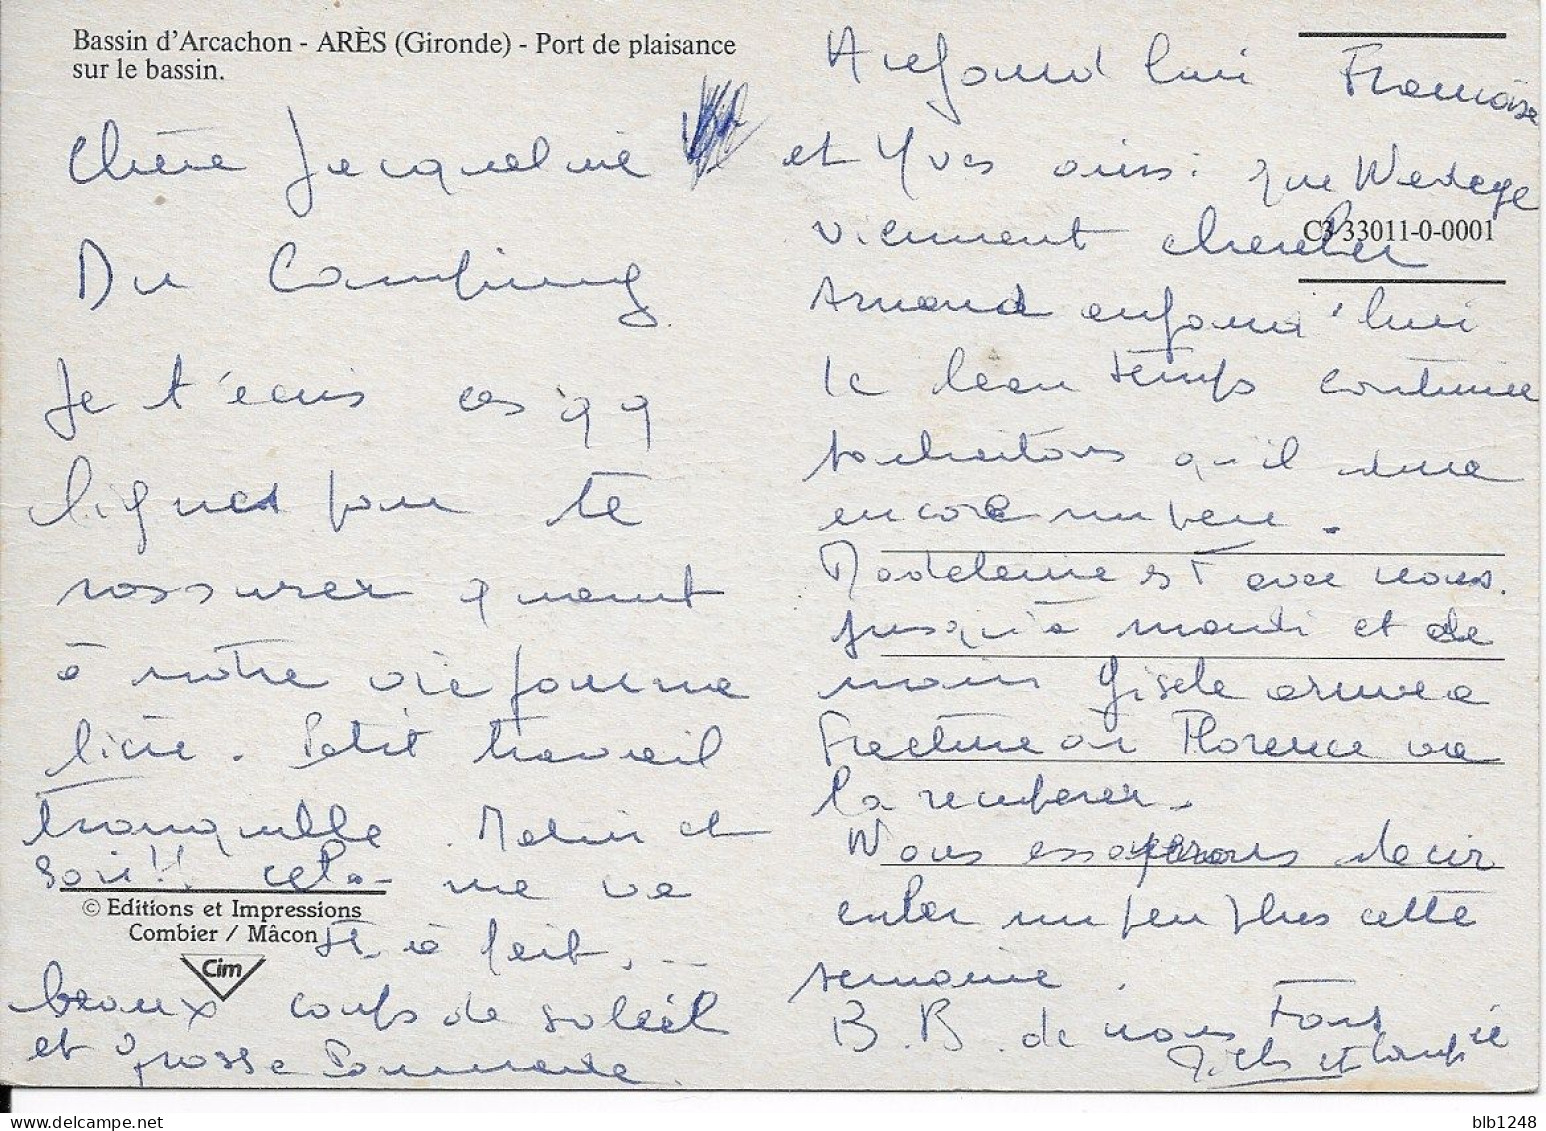 Bassin d'Arcachon - ARÈS (Gironde) - Port de plaisance
sur le bassin.
Chère Jacqueline
Du Camping
Je t'écris ces qq
lignes pour te
rassurer quant
à notre vie fami
liere. Petit travail
tranquille. Matin et
soir!! cela me va
à fait...
beaux coups de soleil
et grosse Pommade.
© Editions et Impressions
Combier / Mâcon
Cim
Aujourd'hui Françoise
et Yves ainsi que
viennent chercher
Arnaud aujourd'hui
le beau temps continue
souhaitons qu'il dure
encore un peu.
Madeleine est avec nous
jusqu'à mardi et de
main Gisele arrive a
Facture où Florence va
la recuperer.
Nous essayerons de cir
culer un peu plus cette
semaine.
B.B. de nous Tous
et
C3 33011-0-0001
blb1248